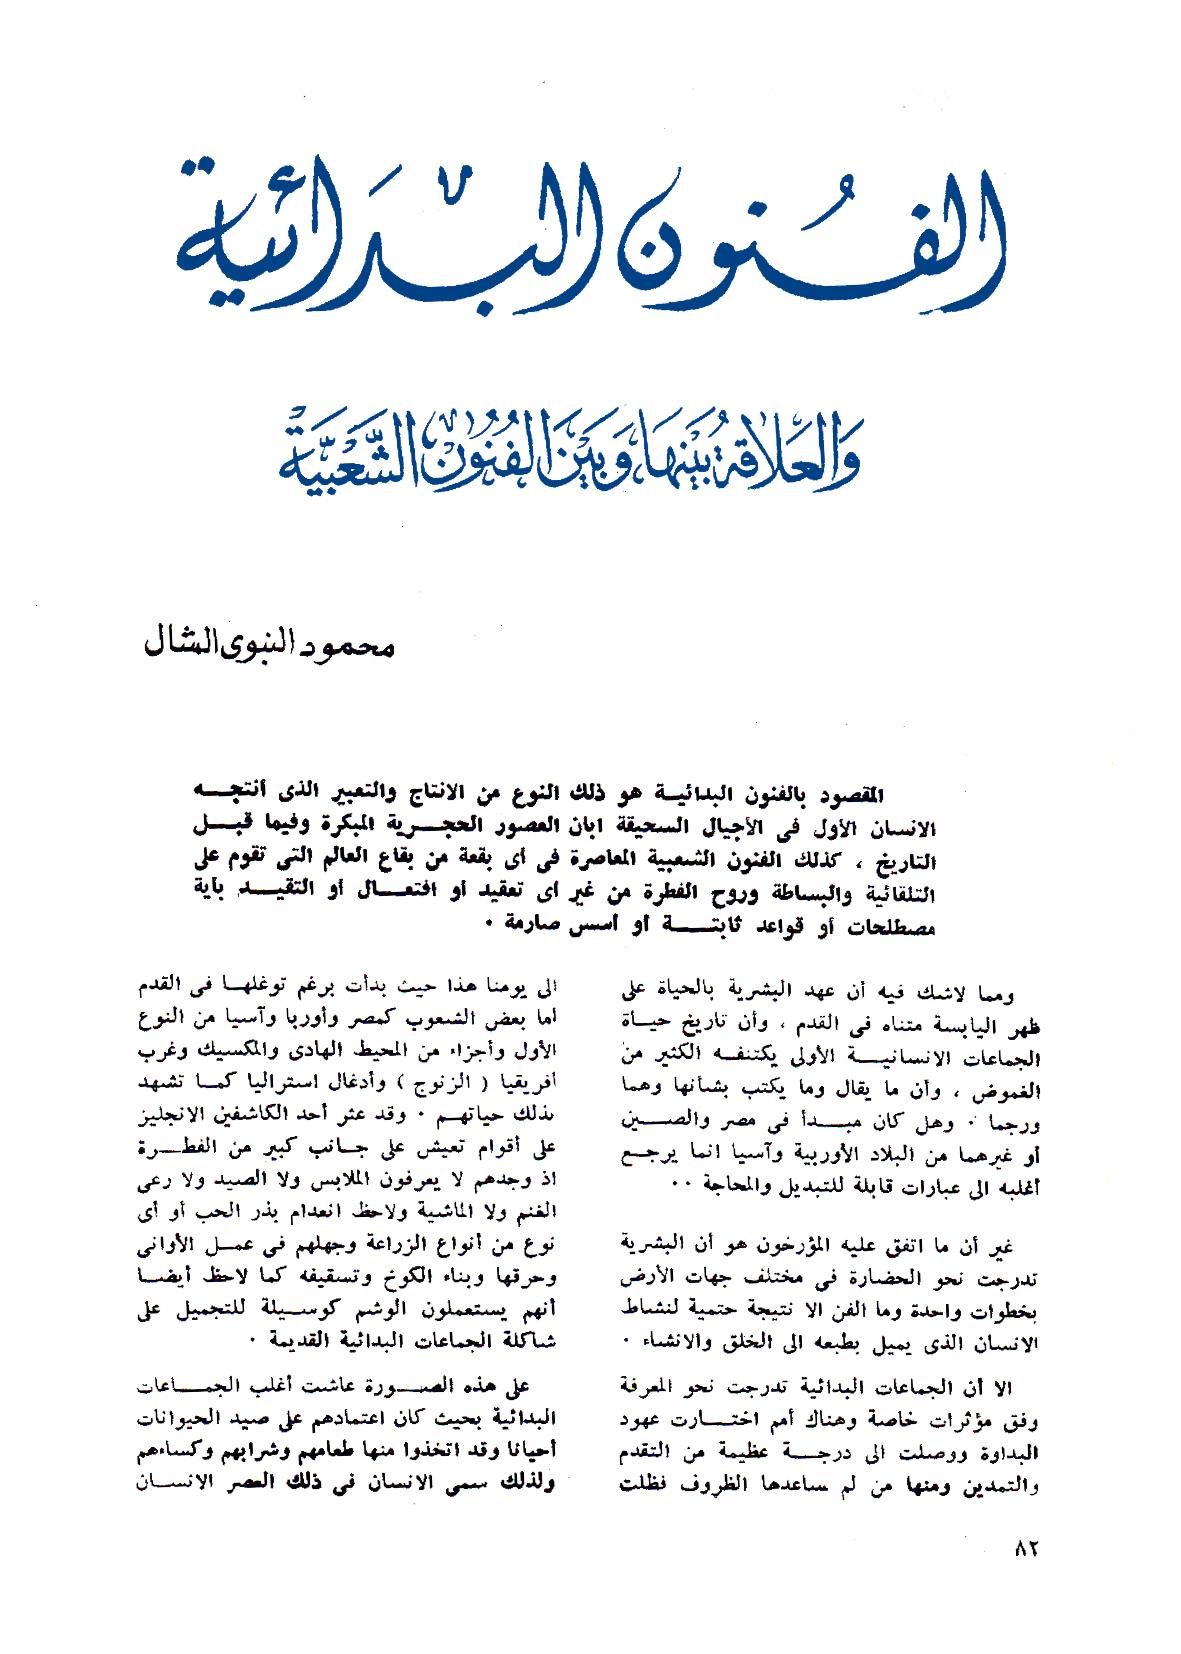 الفُنون البدائية
وَالعَلاقة بَينها وَبَين الفُنُون الشَّعبيَّة
محمود النبوى الشال
المقصود بالفنون البدائيــة هو ذلك النوع من الانتاج والتعبير الذى أنتجـــه
الانسان الأول فى الأجيال السحيقة ابان العصور الحجـــرية المبكرة وفيما قبـــل
التاريخ ، كذلك الفنون الشعبية المعاصرة فى أى بقعة من بقاع العالم التى تقوم على
التلقائية والبساطة وروح الفطرة من غير أى تعقيد أو افتعـــال أو التقيـــد باية
مصطلحات أو قواعد ثابتـــة أو أسس صارمة ٠
ومما لاشك فيه أن عهد البشرية بالحياة على
ظهر اليابسة متناه فى القدم ، وأن تاريخ حيـــاة
الجماعات الانسانيـــة الأولى يكتنفـــه الكثير من
الغموض ، وأن ما يقال وما يكتب بشأنها وهما
ورجما ٠ وهل كان مبـــدأ فى مصر والصـــين
أو غيرهما من البلاد الأوربية وآسيا انما يرجـــع
أغلبه الى عبارات قابلة للتبديل والمحاجة ٠٠
غير أن ما اتفق عليه المؤرخون هو أن البشرية
تدرجت نحو الحضارة فى مختلف جهات الأرض
بخطوات واحدة وما الفن الا نتيجة حتمية لنشاط
الانسان الذى يميل بطبعه الى الخلق والانشاء ٠
الا أن الجماعات البدائية تدرجت نحو المعرفة
وفق مؤثرات خاصة وهناك أمم اختـــارت عهود
البداوة ووصلت الى درجـــة عظيمة من التقدم
والتمدين ومنها من لم ساعدها الظروف فظلت
الى يومنا هذا حيث بدأت برغم توغلهـــا فى القدم
أما بعض الشعوب كمصر وأوربا وآسيا من النوع
الأول وأجزاء من المحيط الهادى والمكسيك وغرب
أفريقيا ( الزنوج ) وأدغال استراليا كمـــا تشهد
بذلك حياتهـــم ٠ وقد عثر أحد الكاشفين الانجليز
على أقوام تعيش على جـــانب كبير من الفطـــرة
اذ وجدهم لا يعرفون الملابس ولا الصيد ولا رعى
الغنم ولا الماشية ولاحظ انعدام بذر الحب أو أى
نوع من أنواع الزراعة وجهلهم فى عمـــل الأوانى
وحرقها وبناء الكوخ وتسقيفه كما لاحظ أيضـــا
أنهم يستعملون الوشم كوســـيلة للتجميل على
شاكلة الجماعات البدائية القديمة ٠
على هذه الصـــورة عاشت أغلب الجمـــاعات
البدائية بحيث كان اعتمادهم على صيد الحيوانات
أحيانا وقد اتخذوا منها طعامهم وشرابهم وكساءهم
ولذلك سمى الانسان فى ذلك العصر الانســـان
٨٢